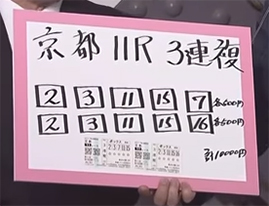 京都 11R 3連複
2 3 11 15 7 各500円
2 3 11 15 16 各500円
計10000円